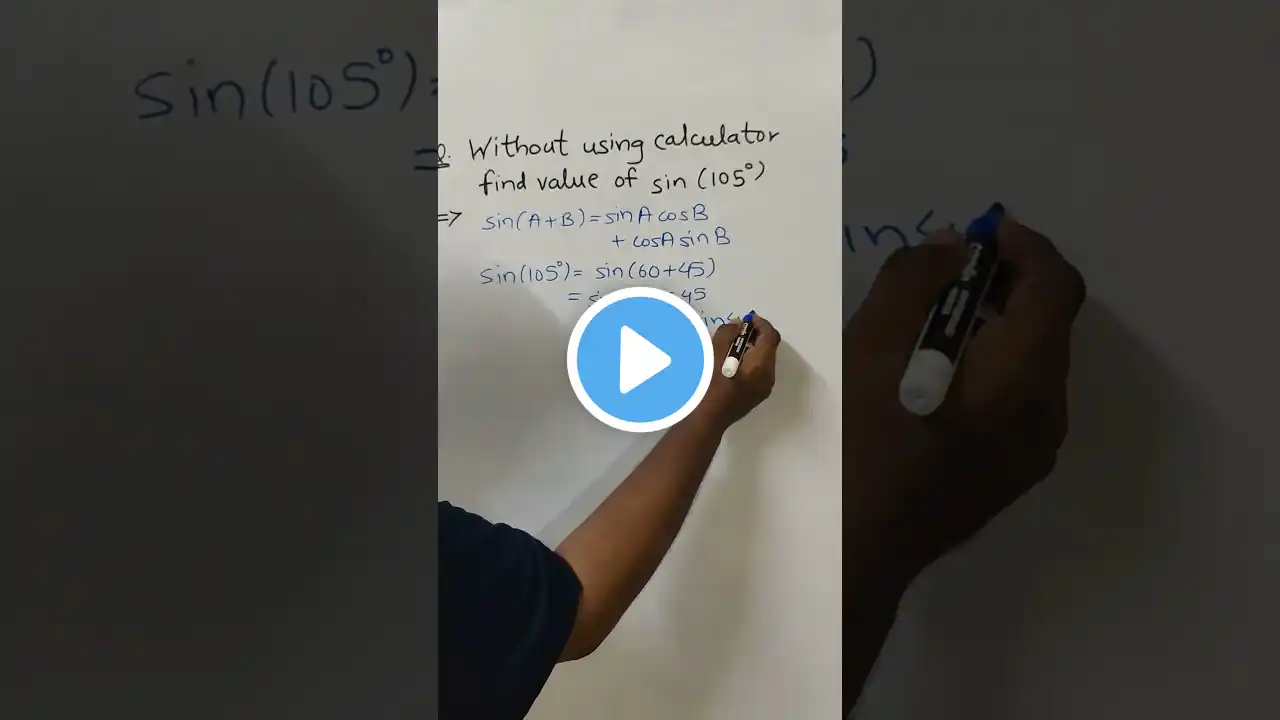 Q. Without using calculator
find value of sin (105°)
=> sin(A+B) = sinA cosB
+ cosA sin B
sin(105°) = sin(60+45)
= 45
sin(105°) =
=